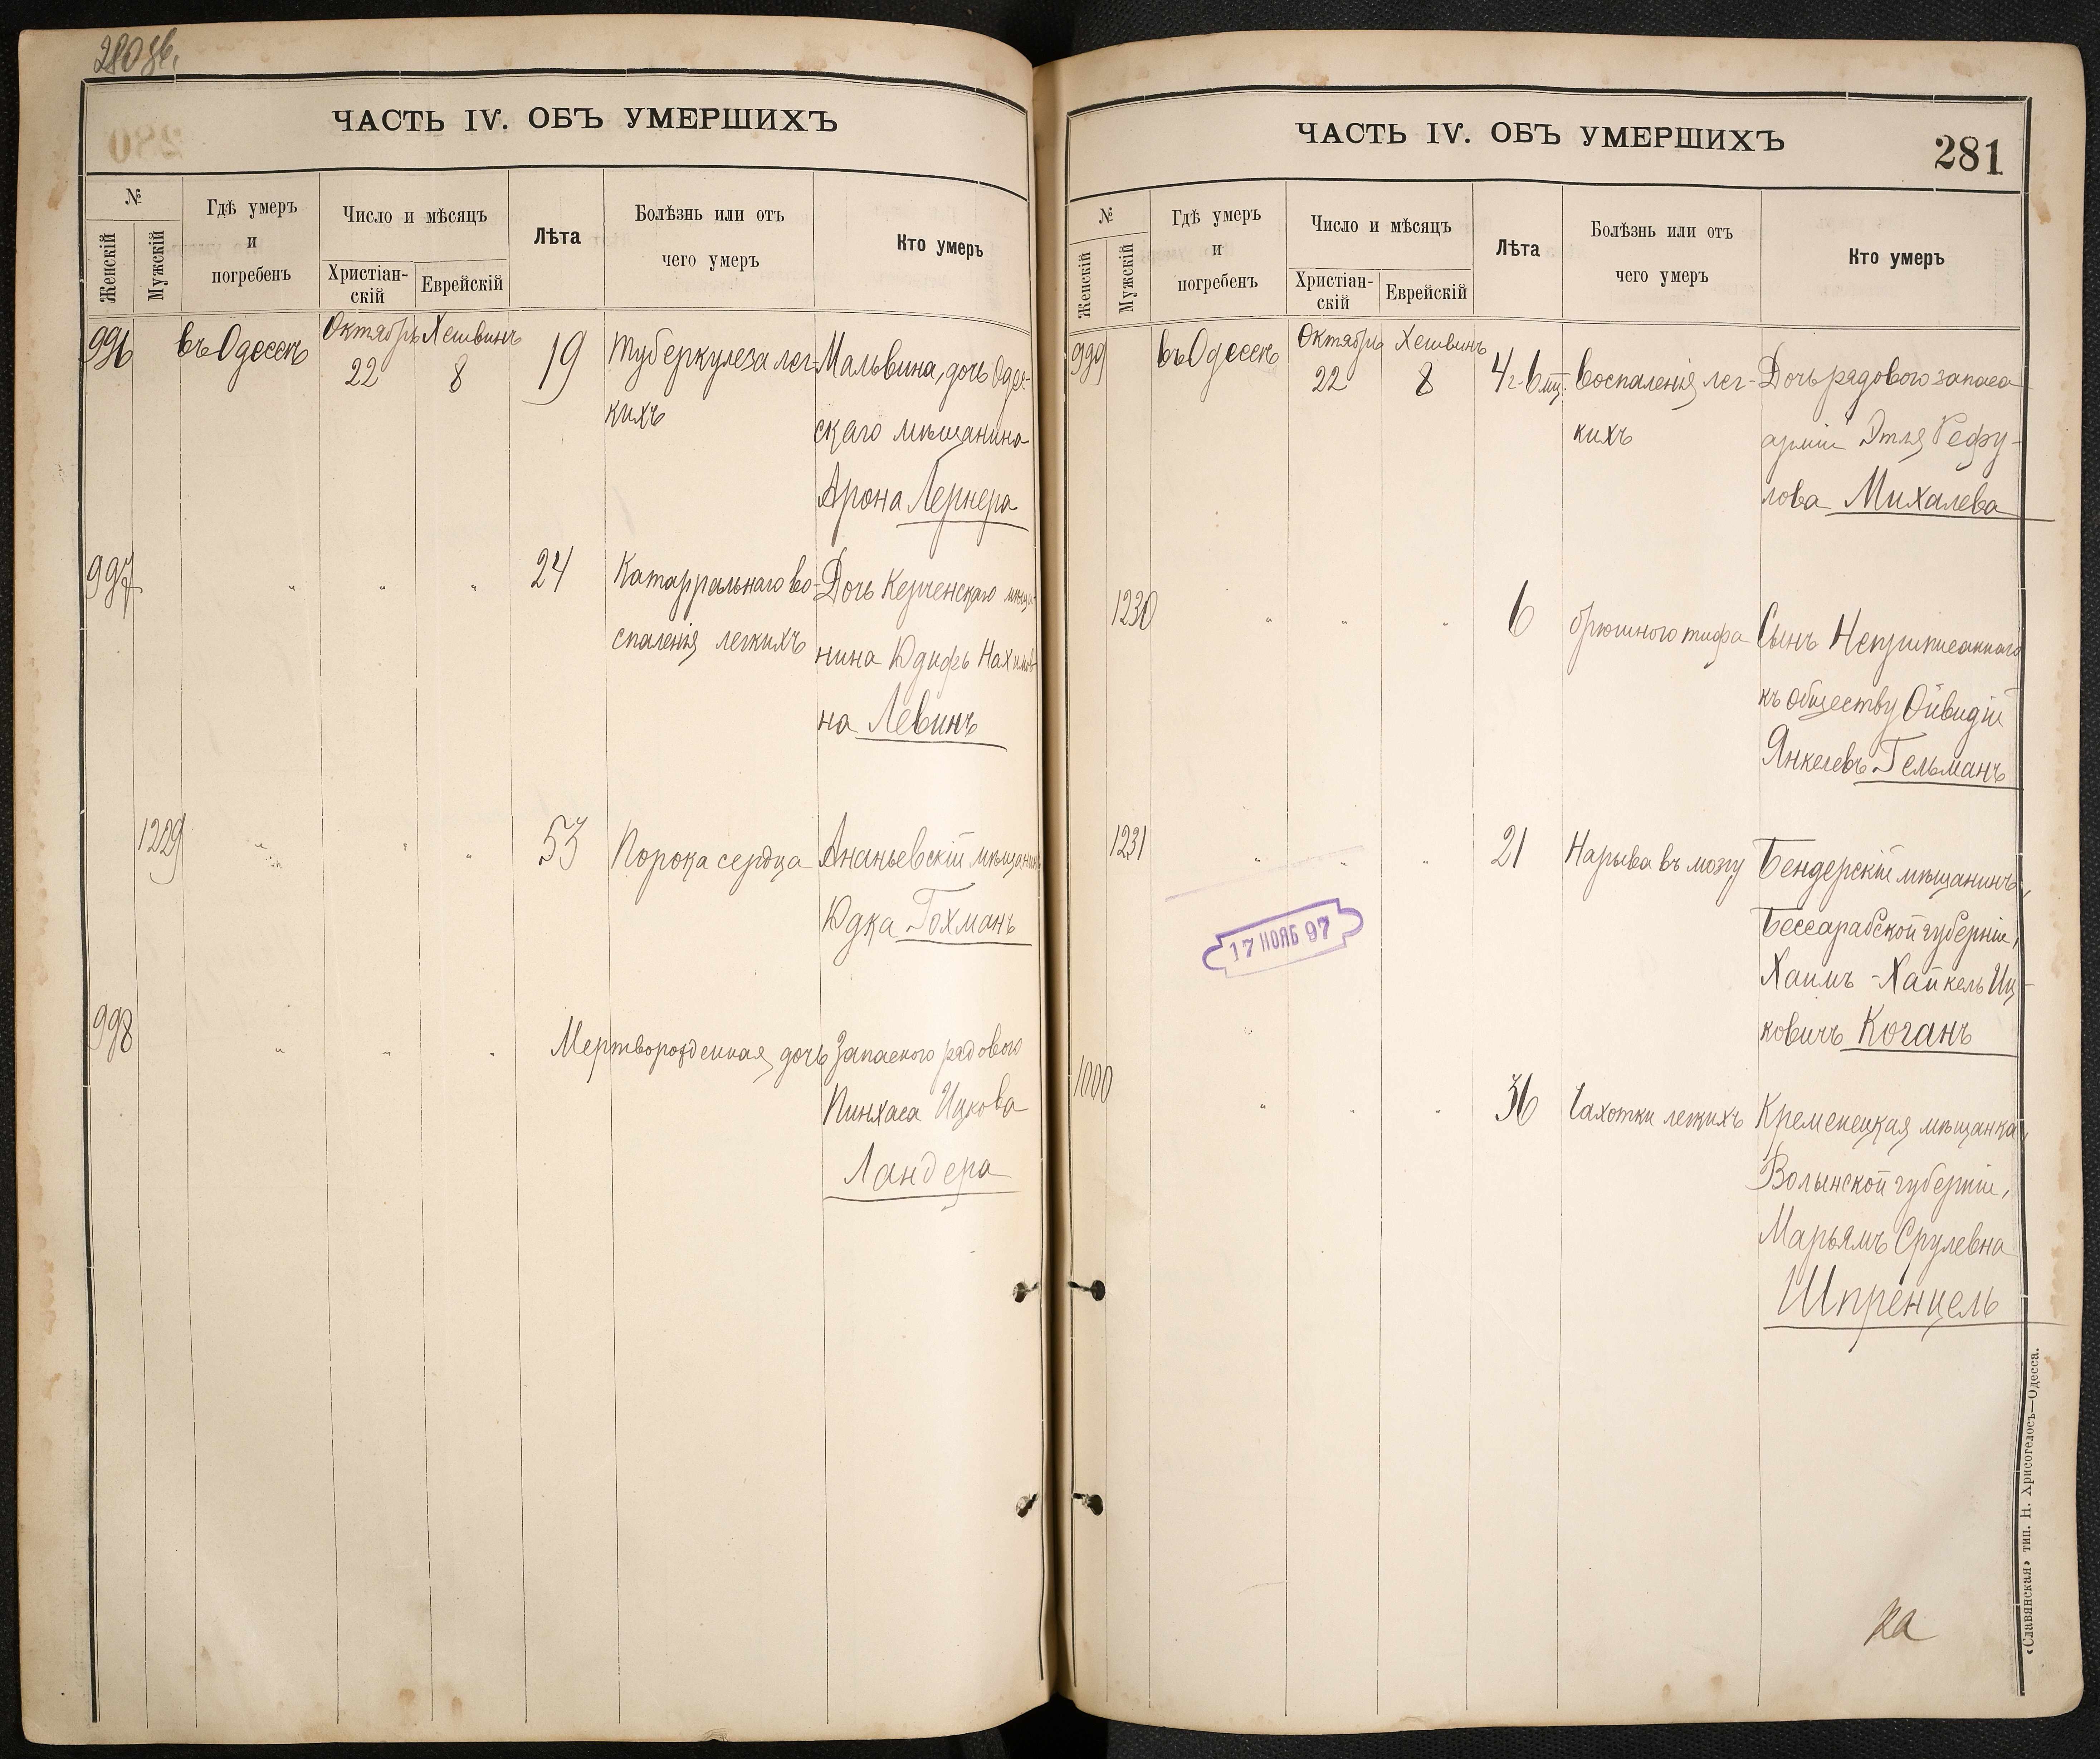 280 об.
ЧАСТЬ IV. ОБЪ УМЕРШИХЪ
№
Женскій
Мужскій
Гдѣ умеръ
и
погребенъ
Число и мѣсяцъ
Христіан-
скій
Еврейскій
Лѣта
Болѣзнь или отъ
чего умеръ
Кто умеръ
996 въ Одессѣ Октябрь 22 Хешвинъ 8 19 Туберкулеза лег- Мальвина, дочь Одес-
кихъ скаго мѣщанина
Арона Лернера
997 " " " 24 Катарральнаго во- Дочь Керченскаго мѣща-
спаленія легкихъ нина Юдифь Нахимов-
на Левинъ
1229 " " " 53 Порока сердца Ананьевскій мѣщанинъ
Юдка Гохманъ
998 " " " Мертворожденная дочь Запасного рядового
Пинхаса Ицкова
Ландера
ЧАСТЬ IV. ОБЪ УМЕРШИХЪ
281
№
Женскій
Мужскій
Гдѣ умеръ
и
погребенъ
Число и мѣсяцъ
Христіан-
скій
Еврейскій
Лѣта
Болѣзнь или отъ
чего умеръ
Кто умеръ
999 въ Одессѣ Октябрь 22 Хешвинъ 8 4 г. 6 мц. Воспаленія лег- Дочь рядового запаса
кихъ арміи Этля Рефу-
лова Михалева
1230 " " " 6 брюшного тифа Сынъ Неприписаннаго
къ обществу Ойвидій
Янкелевъ Гельманъ
1231 " " " 21 Нарыва въ мозгу Бендерскій мѣщанинъ,
Бессарабской губерніи,
Хаимъ-Хайкель Иц-
ковичъ Коганъ
17 НОЯБ 97
1000 " " " 36 Чахотки легкихъ Кременецкая мѣщанка,
Волынской губерніи,
Марьямъ Срулевна
Шпренцель
«Славянская» тип. Н. Хрисогелосъ—Одесса.